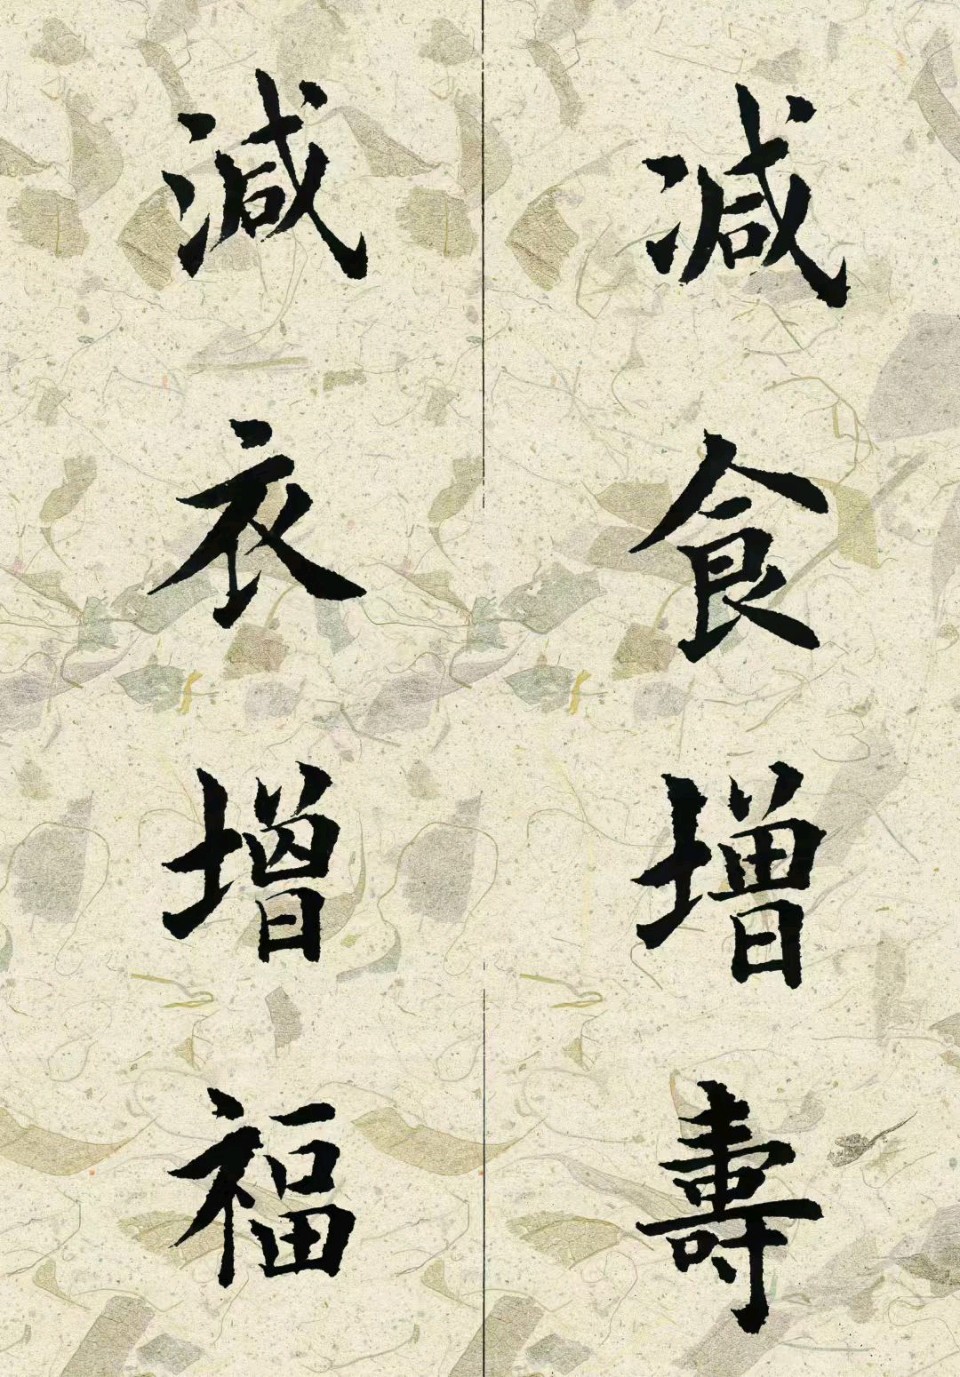 減食增壽
減衣增福